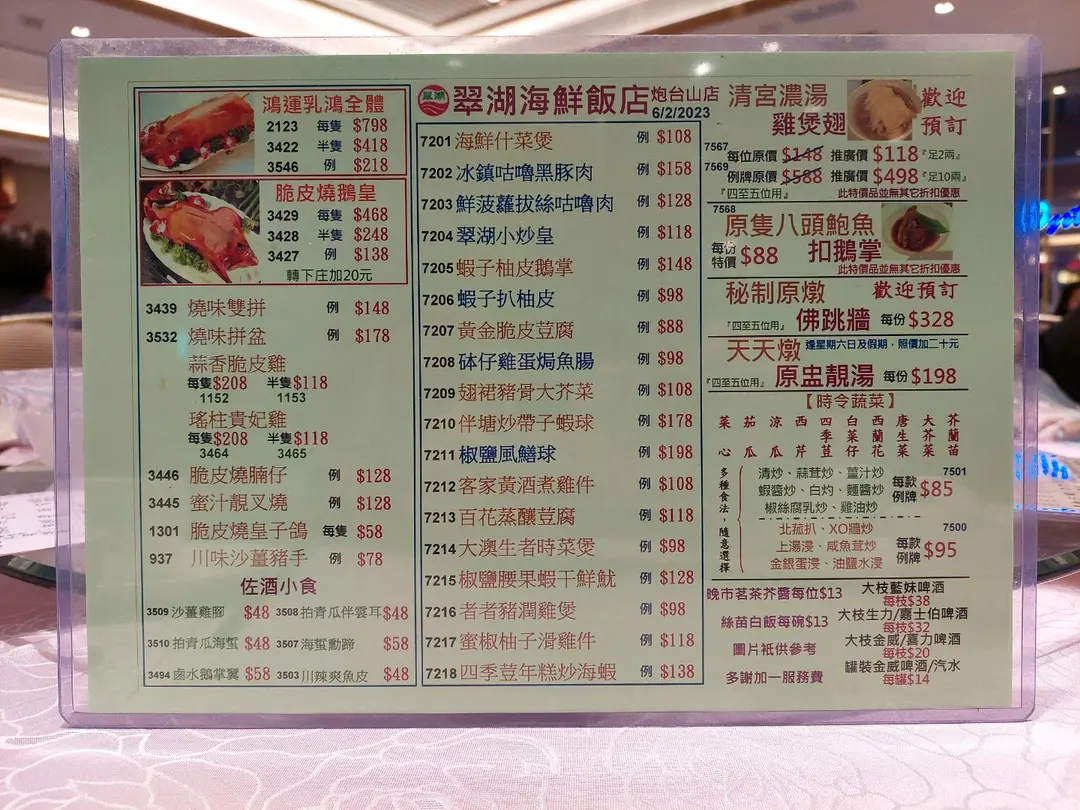 鴻運乳鴻全體
2123 每隻 $798
3422 半隻 $418
3546 例 $218
脆皮燒鵝皇
3429 每隻 $468
3428 半隻 $248
3427 例 $138
轉下庄加20元
3439 燒味雙拼 例 $148
3532 燒味拼盆 例 $178
蒜香脆皮雞
每隻$208 半隻$118
1152 1153
瑤柱貴妃雞
每隻$208 半隻$118
3464 3465
3446 脆皮燒腩仔 例 $128
3445 蜜汁靚叉燒 例 $128
1301 脆皮燒皇子鴿 每隻 $58
937 川味沙薑豬手 例 $78
佐酒小食
3509 沙薑雞腳 $48 3508 拍青瓜伴雲耳 $48
3510 拍青瓜海蜇 $48 3507 海蜇勳蹄 $58
3494 鹵水鵝掌翼 $58 3503 川辣爽魚皮 $48
翠湖
翠湖海鮮飯店 炮台山店
6/2/2023
7201 海鮮什菜煲 例 $108
7202 冰鎮咕嚕黑豚肉 例 $158
7203 鮮菠蘿拔絲咕嚕肉 例 $128
7204 翠湖小炒皇 例 $118
7205 蝦子柚皮鵝掌 例 $148
7206 蝦子扒柚皮 例 $98
7207 黃金脆皮荳腐 例 $88
7208 砵仔雞蛋焗魚腸 例 $98
7209 翅裙豬骨大芥菜 例 $108
7210 伴塘炒帶子蝦球 例 $178
7211 椒鹽風鱔球 例 $198
7212 客家黃酒煮雞件 例 $108
7213 百花蒸釀荳腐 例 $118
7214 大澳生者時菜煲 例 $98
7215 椒鹽腰果蝦干鮮魷 例 $128
7216 者者豬潤雞煲 例 $98
7217 蜜椒柚子滑雞件 例 $118
7218 四季荳年糕炒海蝦 例 $138
清宮濃湯
雞煲翅
歡迎
預訂
7567 每位原價 $148 推廣價 $118 『足2兩』
7569 例牌原價 $588 推廣價 $498 『足10兩』
『四至五位用』 此特價品並無其它折扣優惠
7568
原隻八頭鮑魚
扣鵝掌
每份特價 $88
此特價品並無其它折扣優惠
秘制原燉 歡迎預訂
『四至五位用』 佛跳牆 每份 $328
天天燉 逢星期六日及假期，照價加二十元
『四至五位用』 原盅靚湯 每份 $198
【時令蔬菜】
菜心 茄瓜 涼瓜 西芹 四季荳 白菜仔 西蘭花 唐生菜 大芥菜 芥蘭苗
多種食法，隨意選擇
清炒、蒜茸炒、薑汁炒
蝦醬炒、白灼、麵醬炒
椒絲腐乳炒、雞油炒
7501
每款例牌 $85
北菰扒、XO醬炒
上湯浸、咸魚茸炒
金銀蛋浸、油鹽水浸
7500
每款例牌 $95
晚市茗茶芥醬每位$13
絲苗白飯每碗$13
圖片衹供參考
多謝加一服務費
大枝藍妹啤酒
每枝$38
大枝生力/嘉士伯啤酒
每枝$32
大枝金威/喜力啤酒
每枝$20
罐裝金威啤酒/汽水
每罐$14